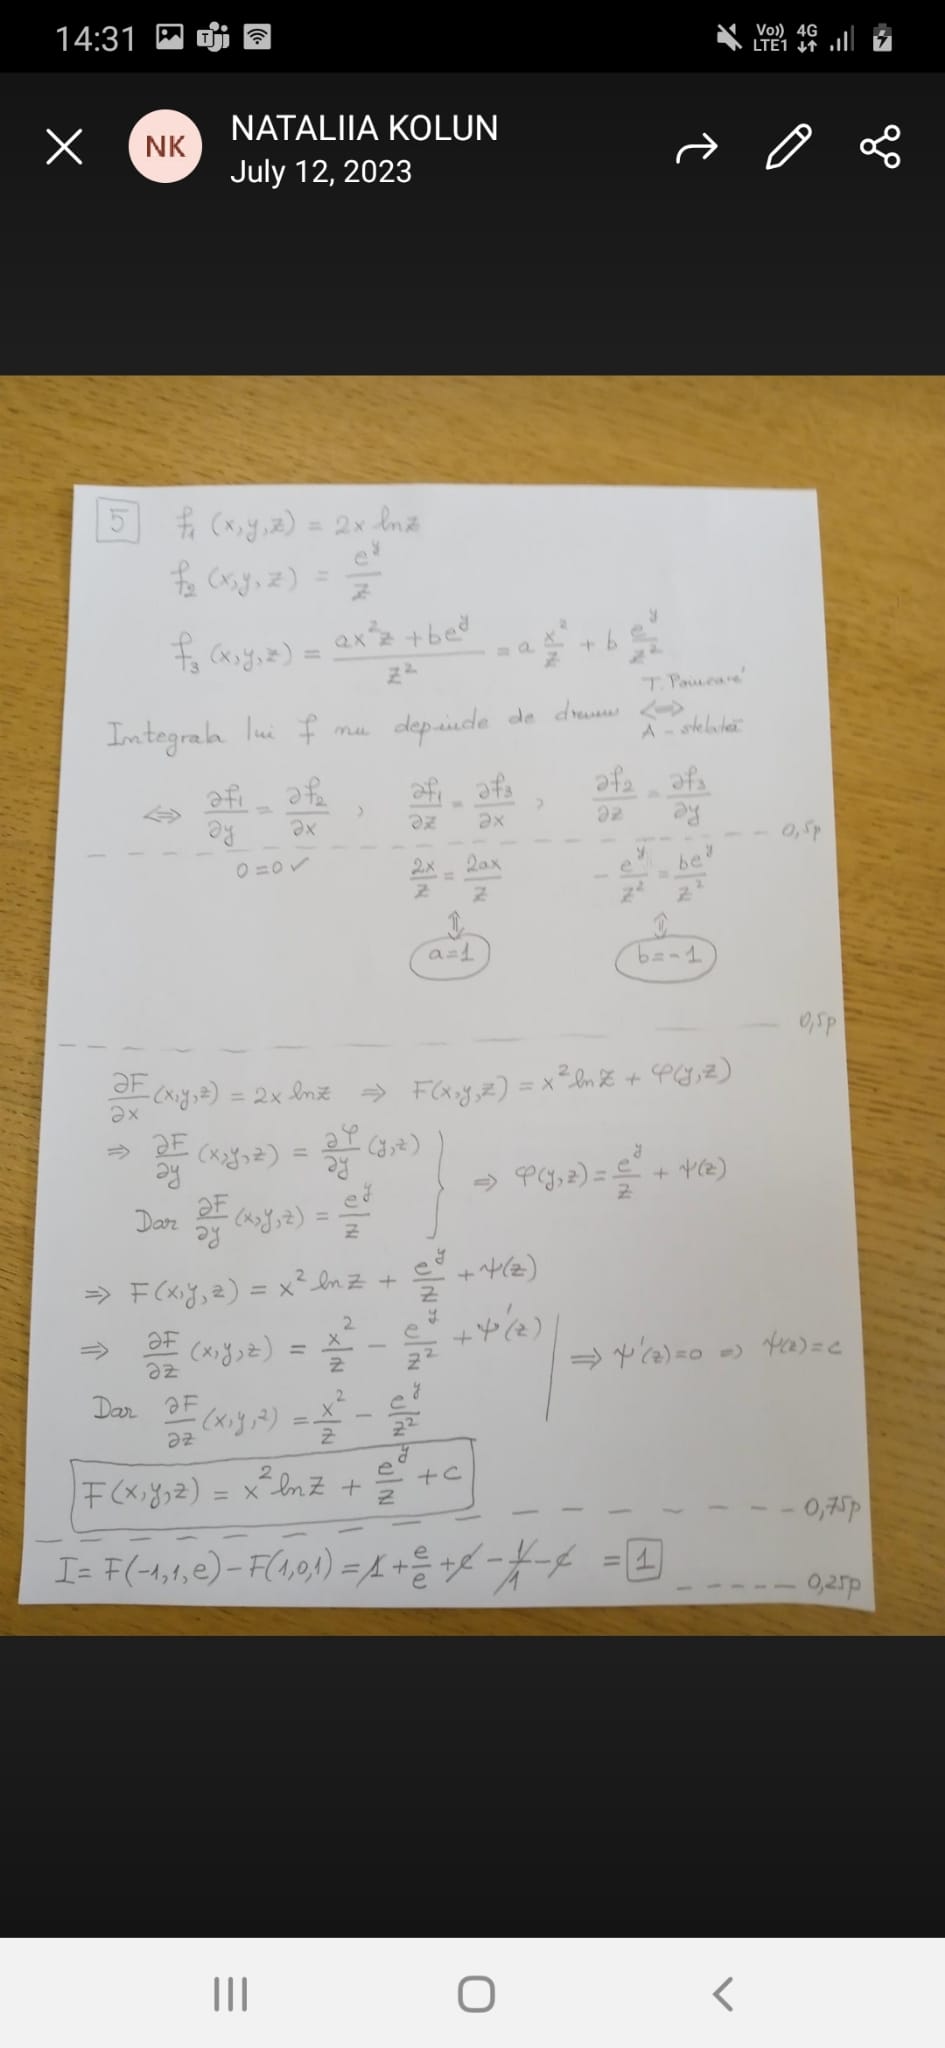 14:31 Vo)) 4G
LTE1
NK NATALIIA KOLUN
July 12, 2023
5 f₁ (x,y,z) = 2x lnz
f₂ (x,y,z) = e^y/z
f₃ (x,y,z) = (ax²z + be^y)/z² = a x²/z + b e^y/z²
T. Poincaré
Integrala lui f nu depinde de drum ⟺
A - stelată
⟺ ∂f₁/∂y = ∂f₂/∂x , ∂f₁/∂z = ∂f₃/∂x , ∂f₂/∂z = ∂f₃/∂y
0,5p
0=0 ✓ 2x/z = 2ax/z - e^y/z² = be^y/z²
⇕ ⇕
a=1 b=-1
0,5p
∂F/∂x (x,y,z) = 2x lnz ⇒ F(x,y,z) = x² lnz + φ(y,z)
⇒ ∂F/∂y (x,y,z) = ∂φ/∂y (y,z)
⇒ φ(y,z) = e^y/z + ψ(z)
Dar ∂F/∂y (x,y,z) = e^y/z
⇒ F(x,y,z) = x² lnz + e^y/z + ψ(z)
⇒ ∂F/∂z (x,y,z) = x²/z - e^y/z² + ψ'(z)
⇒ ψ'(z)=0 ⇒ ψ(z)=c
Dar ∂F/∂z (x,y,z) = x²/z - e^y/z²
F(x,y,z) = x² lnz + e^y/z + c
0,75p
I = F(-1,1,e) - F(1,0,1) = 1 + e/e + c - 1/1 - c = 1
0,25p